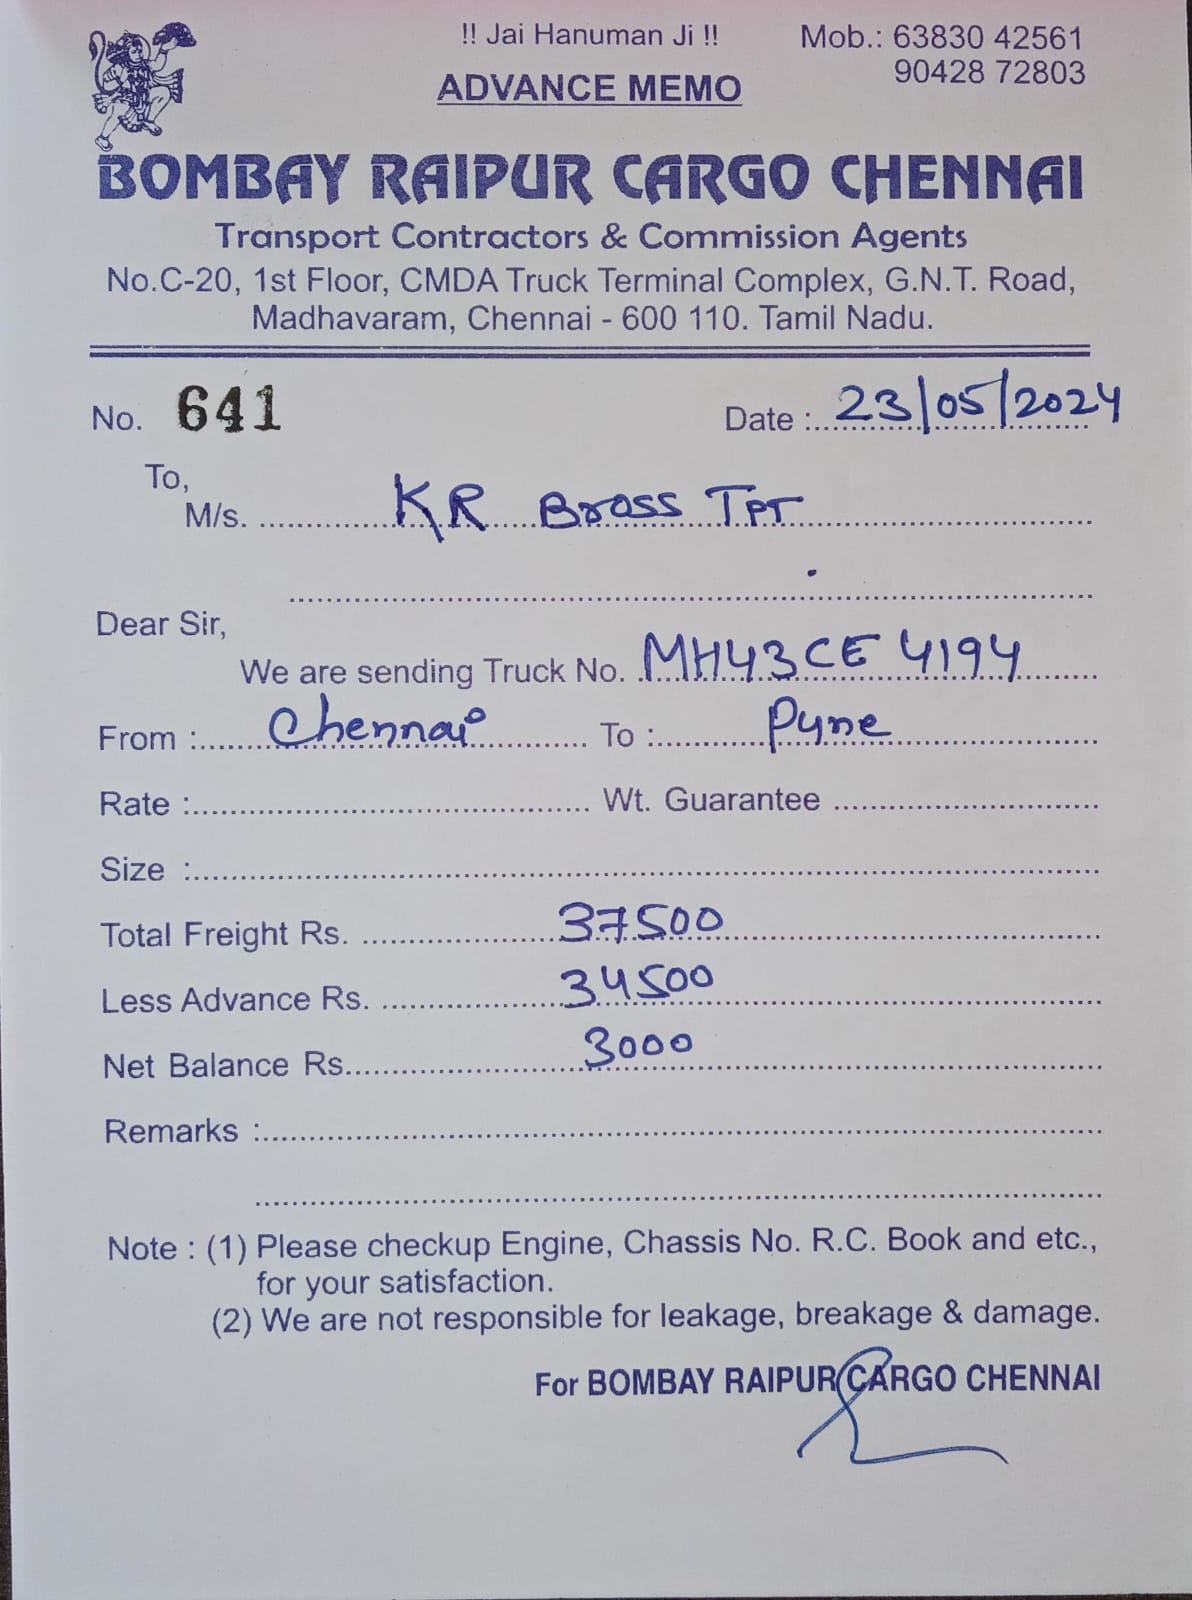 !! Jai Hanuman Ji !! Mob.: 63830 42561
90428 72803
ADVANCE MEMO
BOMBAY RAIPUR CARGO CHENNAI
Transport Contractors & Commission Agents
No.C-20, 1st Floor, CMDA Truck Terminal Complex, G.N.T. Road,
Madhavaram, Chennai - 600 110. Tamil Nadu.
No. 641 Date : 23/05/2024
To,
M/s. KR Bross TPT
Dear Sir,
We are sending Truck No. MH43CE 4194
From : Chennai To : Pyne
Rate : Wt. Guarantee
Size :
Total Freight Rs. 37500
Less Advance Rs. 34500
Net Balance Rs. 3000
Remarks :
Note : (1) Please checkup Engine, Chassis No. R.C. Book and etc.,
for your satisfaction.
(2) We are not responsible for leakage, breakage & damage.
For BOMBAY RAIPUR CARGO CHENNAI